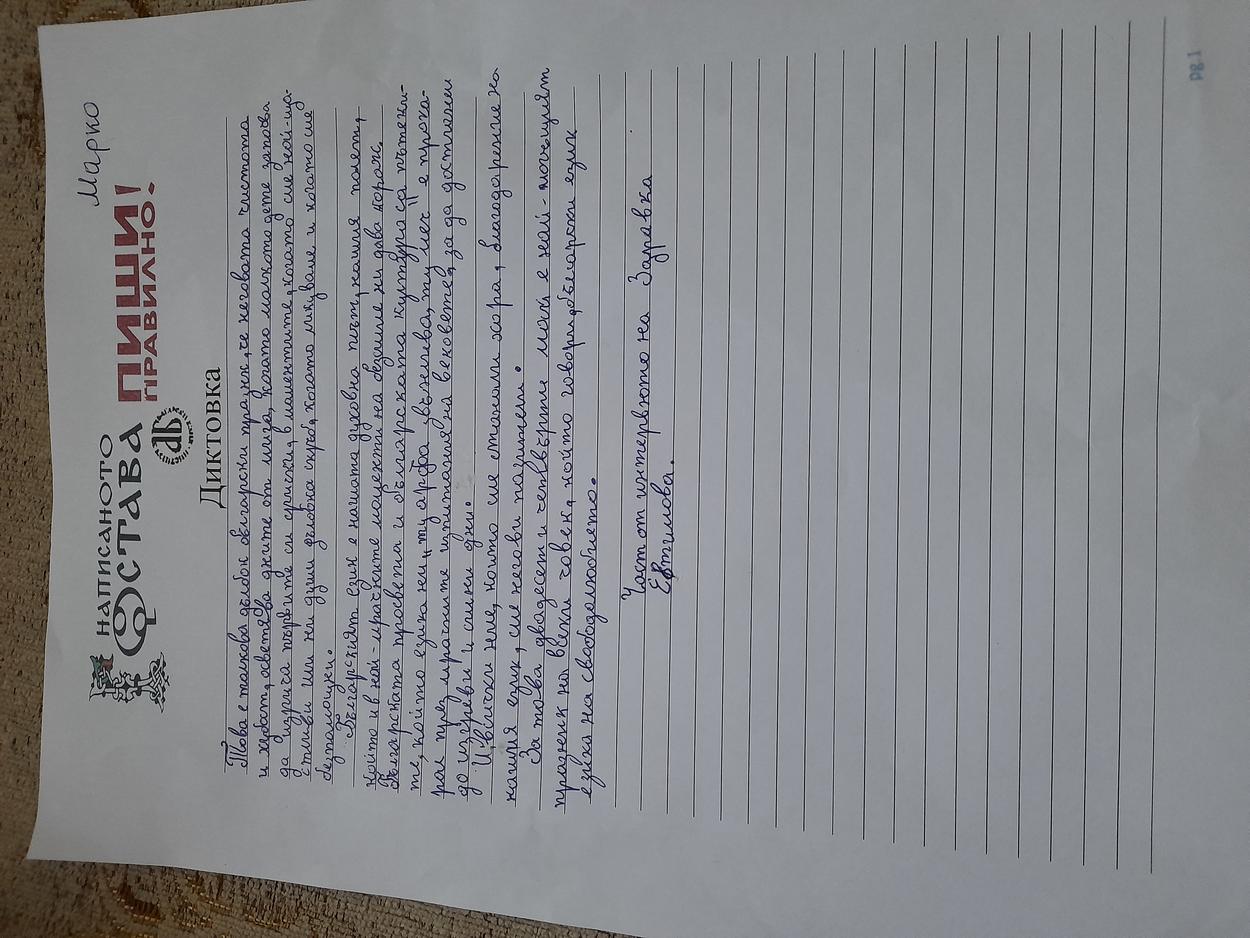 Марко
НАПИСАНОТО
ОСТАВА
ПИШИ!
ПРАВИЛНО!
Диктовка
Това е толкова дълбок български празник, че неговата чистота
и хубост, осветява дните от мига, когато малкото дете започва
да изрича първите си срички, в моментите, когато сме най-ща-
стливи или ни души дълбока скръб, когато ликуваме и когато сме
безпомощни.
Българският език е нашата духовна плът, нашия полет,
който и в най-мрачните моменти на безсилие ни дава кураж.
Българската просвета и българската култура са пътеки-
те, които езика ни „ту арфа звънлива, ту меч" е прока-
рал през мрачните изпитания на вековете, за да достигнем
до изгреви и силни дни.
И всички ние, които сме станали хора, благодарение на
нашия език, сме негови палители.
За това двадесет и четвърти май е най-мощният
празник на всеки човек, който говори добългарски език
езика на свободолюбието.
Част от интервюто на Здравка
Евтимова.
pg.1